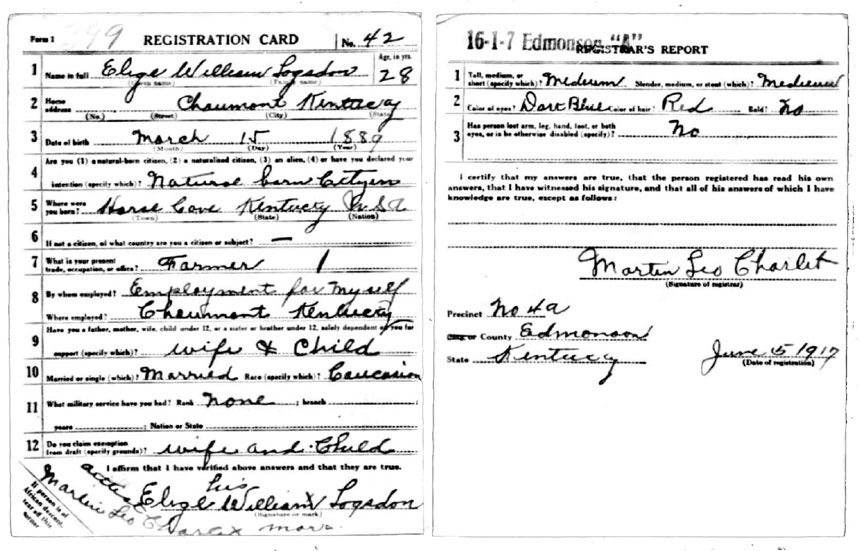 Form 1 299 REGISTRATION CARD No. 42
1 Name in full Elige William Logsdon Age, in yrs. 28
(Given name) (Family name)
2 Home address Chaumont Kentucky
(No.) (Street) (City) (State)
3 Date of birth March 15 1889
(Month) (Day) (Year)
Are you (1) a natural-born citizen, (2) a naturalized citizen, (3) an alien, (4) or have you declared your
4 intention (specify which)? Natural born Citizen
5 Where were you born? Horse Cove Kentucky U S A
(Town) (State) (Nation)
6 If not a citizen, of what country are you a citizen or subject? —
7 What is your present trade, occupation, or office? Farmer 1
8 By whom employed? Employment for Myself
Where employed? Chaumont Kentucky
Have you a father, mother, wife, child under 12, or a sister or brother under 12, solely dependent on you for
9 support (specify which)? wife & Child
10 Married or single (which)? Married Race (specify which)? Caucasion
11 What military service have you had? Rank none ; branch
years ; Nation or State
12 Do you claim exemption from draft (specify grounds)? wife and Child
I affirm that I have verified above answers and that they are true.
his
Elige William X Logsdon
(Signature or mark)
mark
If person is of African descent, tear off this corner.
attest
Martin Leo
16-1-7 Edmonson "A"
REGISTRAR'S REPORT
1 Tall, medium, or short (specify which)? Medium Slender, medium, or stout (which)? Medium
2 Color of eyes? Dark Blue Color of hair? Red Bald? No
3 Has person lost arm, leg, hand, foot, or both eyes, or is he otherwise disabled (specify)? No
I certify that my answers are true, that the person registered has read his own
answers, that I have witnessed his signature, and that all of his answers of which I have
knowledge are true, except as follows:
Martin Leo Charlet
(Signature of registrar)
Precinct No 4a
City or County Edmonson
State Kentucky June 5 1917
(Date of registration)